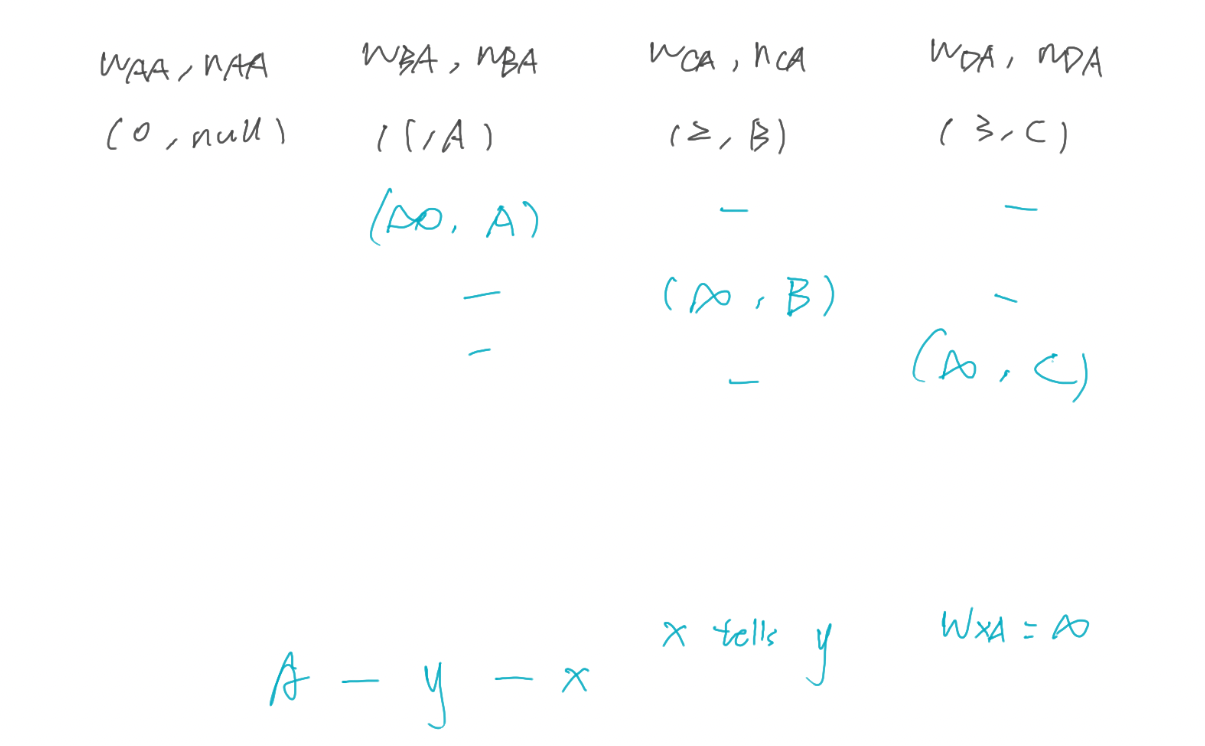 WAA, nAA WBA, nBA WCA, nCA WDA, nDA
(0, null) (1, A) (2, B) (3, C)
(∞, A) – –
– (∞, B) –
– – (∞, C)
x tells y WxA = ∞
A – y – x